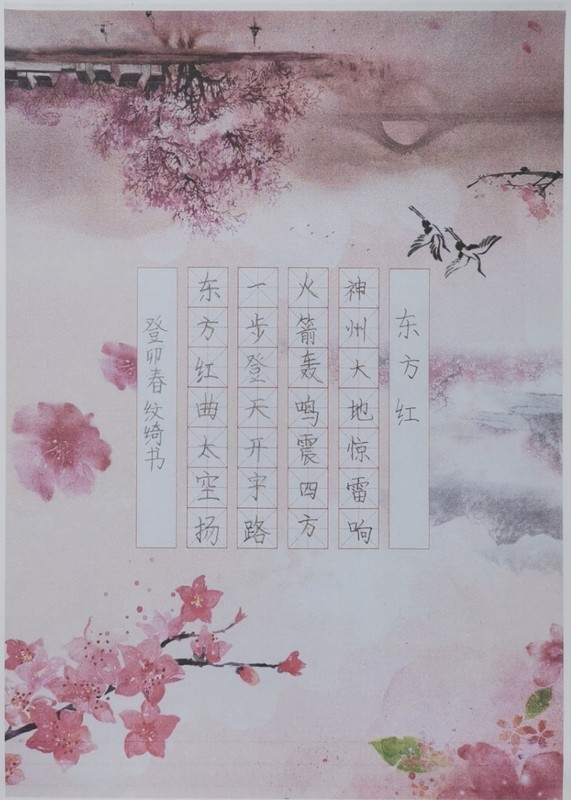 东方红
神州大地惊雷响
火箭轰鸣震四方
一步登天开宇路
东方红曲太空扬
登卯春纹绮书